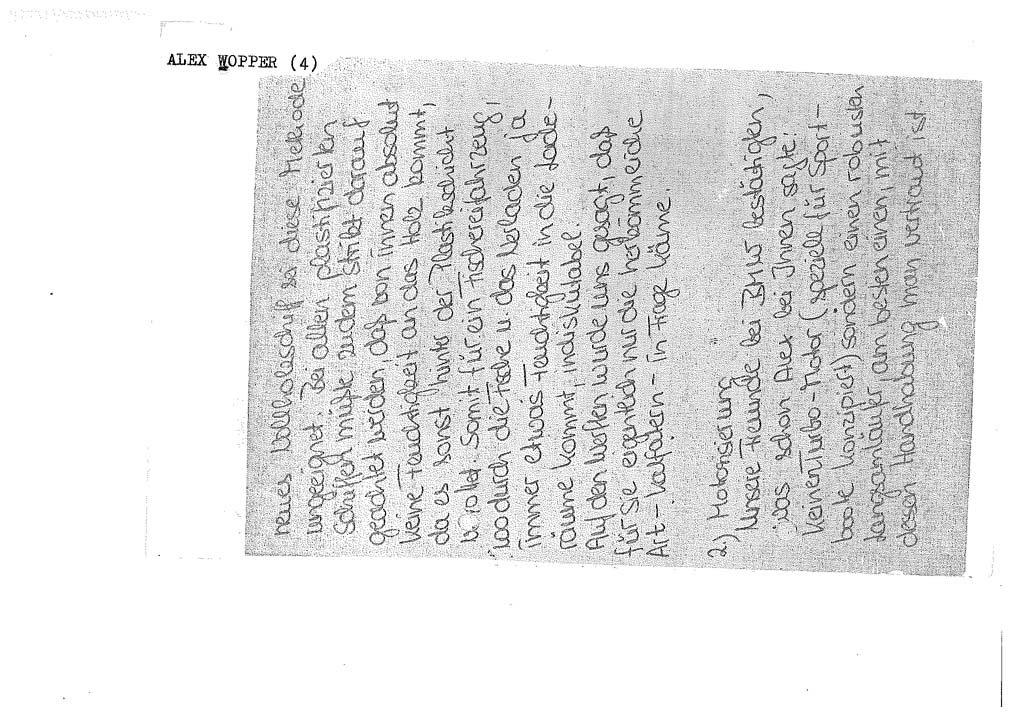 ALEX WOPPER (4)
neues Vollholzschiff sei diese Methode
ungeeignet. Bei allen plastifizierten
Schiffen müßte zudem strikt darauf
geachtet werden, daß von innen absolut
keine Feuchtigkeit an das Holz kommt,
da es sonst hinter der Plastikschicht
verrottet. Somit für ein Fischereifahrzeug,
wo durch die Fische u. das Verladen ja
immer etwas Feuchtigkeit in die Lade-
räume kommt, indiskutabel.
Auf den Werften wurde uns gesagt, daß
für Sie eigentlich nur die herkömmliche
Art - Kalfatern - in Frage käme.
2.) Motorisierung
Unsere Freunde bei BMW bestätigten,
was schon Alex bei Ihnen sagte:
keinen Turbo-Motor (speziell für Sport-
boote konzipiert) sondern einen robusten
Langsamläufer, am besten einen, mit
dessen Handhabung man vertraut ist.